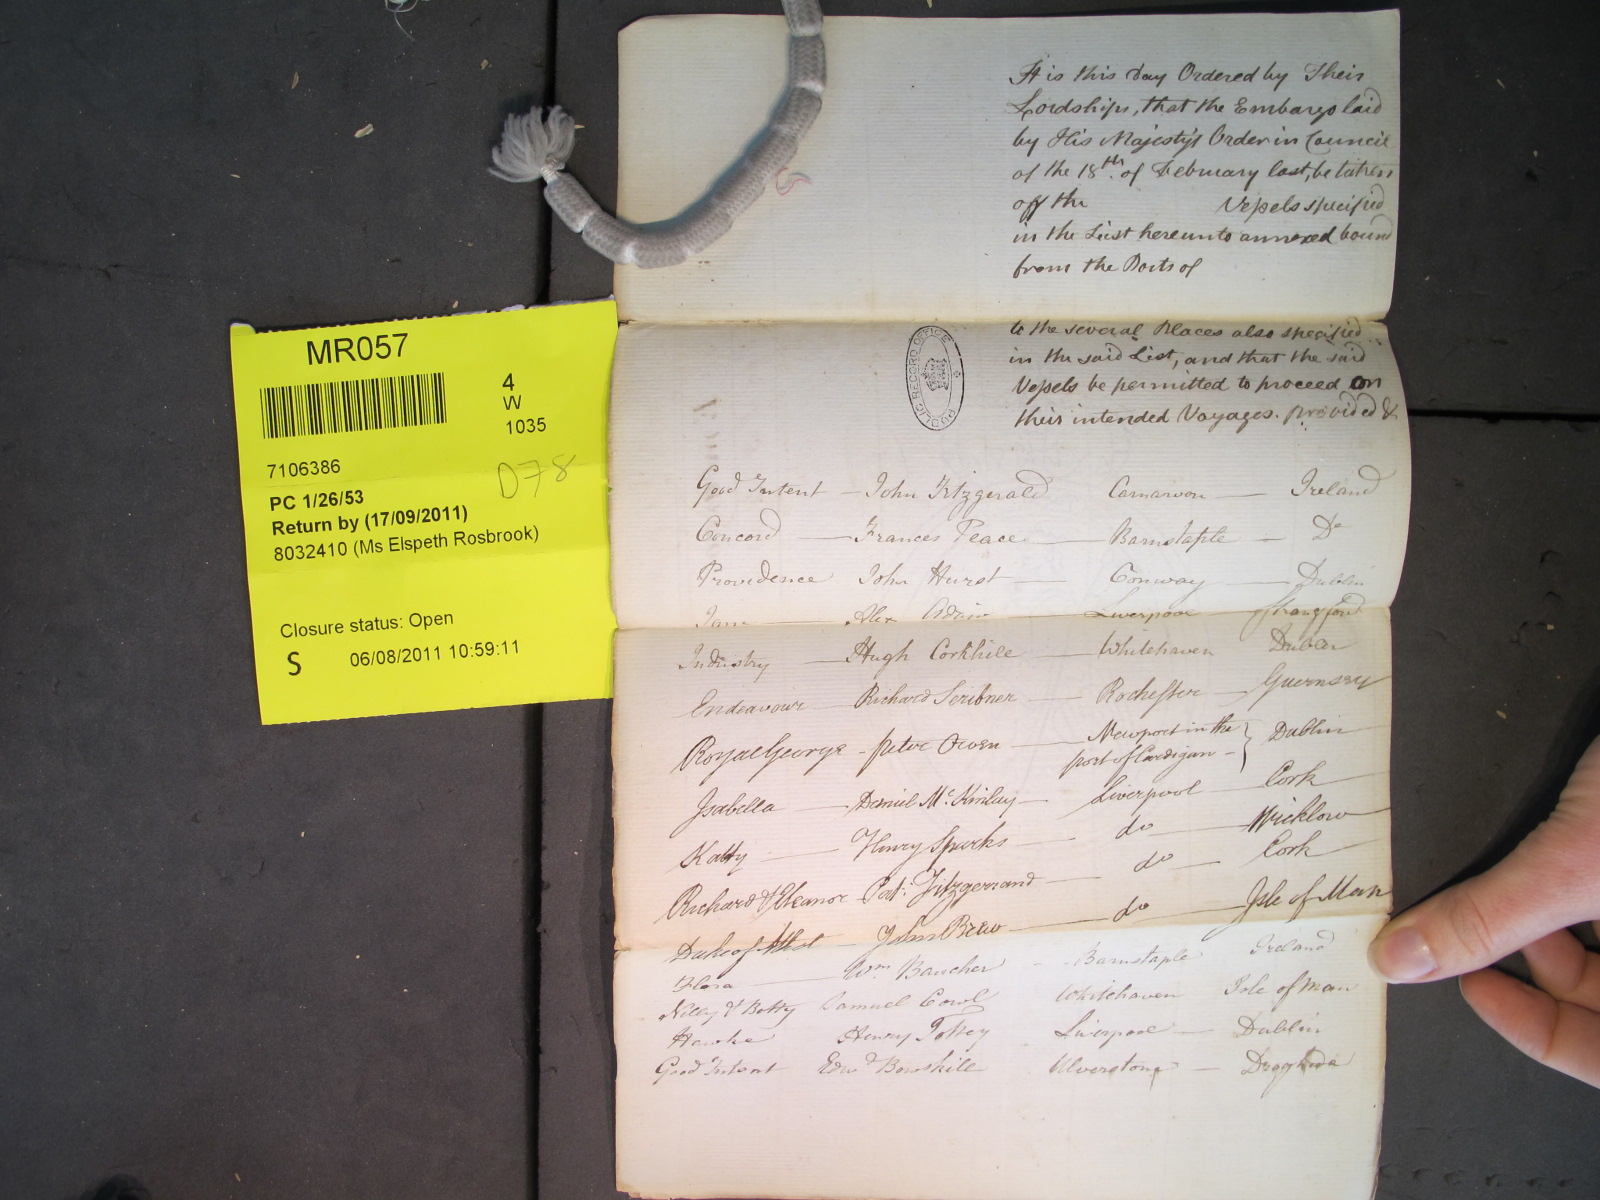 It is this Day Ordered by Their
Lordships, that the Embargo laid
by His Majesty's Order in Council
of the 18th. of February last, be taken
off the Vessels specified
in the List hereunto annexed bound
from the Ports of
to the several Places also specified
in the said List, and that the said
Vessels be permitted to proceed on
their intended Voyages. provided &
PUBLIC RECORD OFFICE
Good Intent — John Fitzgerald Carnarvon — Ireland
Concord — Frances Peace Barnstaple — Do
Providence John Hurst — Conway — Dublin
Jane — Alex Liverpool Strangford
Industry — Hugh Corkhile — Whitehaven Dublin
Endeavour Richard Scribner — Rochester — Guernsey
Royal George - Peter Owen — Newport in the
port of Cardigan - } Dublin
Isabella — Daniel McKinlay — Liverpool — Cork
Katty — Henry Sparks — do — Wicklow
Richard & Eleanor Pat: Fitzgerrand — do — Cork
Duke of Athol — John Brew — do — Isle of Man
Flora — Wm Baucher - Barnstaple Ireland
Nilly & Betty Samuel Cowl Whitehaven Isle of Man
Hawke Henry Liverpool — Dublin
Good Intent Edwd Bowskill Ulverstone — Drogheda
MR057
4
W
1035
7106386
D78
PC 1/26/53
Return by (17/09/2011)
8032410 (Ms Elspeth Rosbrook)
Closure status: Open
S 06/08/2011 10:59:11